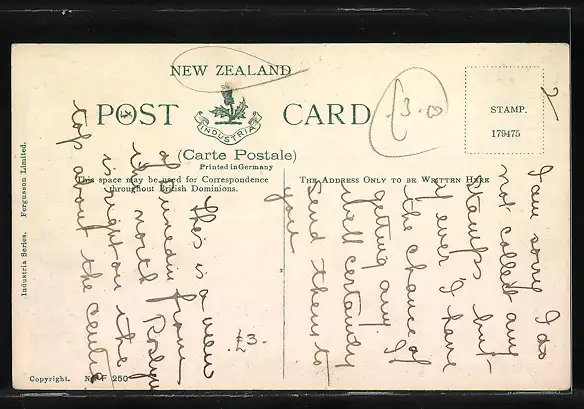 NEW ZEALAND
POST CARD
INDUSTRIA
(Carte Postale)
Printed in Germany
This space may be used for Correspondence
throughout British Dominions.
THE ADDRESS ONLY TO BE WRITTEN HERE
STAMP.
179475
Industria Series. Fergusson Limited.
Copyright.
250
£3.00
£3.
2
This is a view
of Dunedin from
the north Roslyn
is right on the
top about the centre
I am sorry I do
not collect any
stamps, but
if ever I have
the chance of
getting any
shall certainly
send them to
you